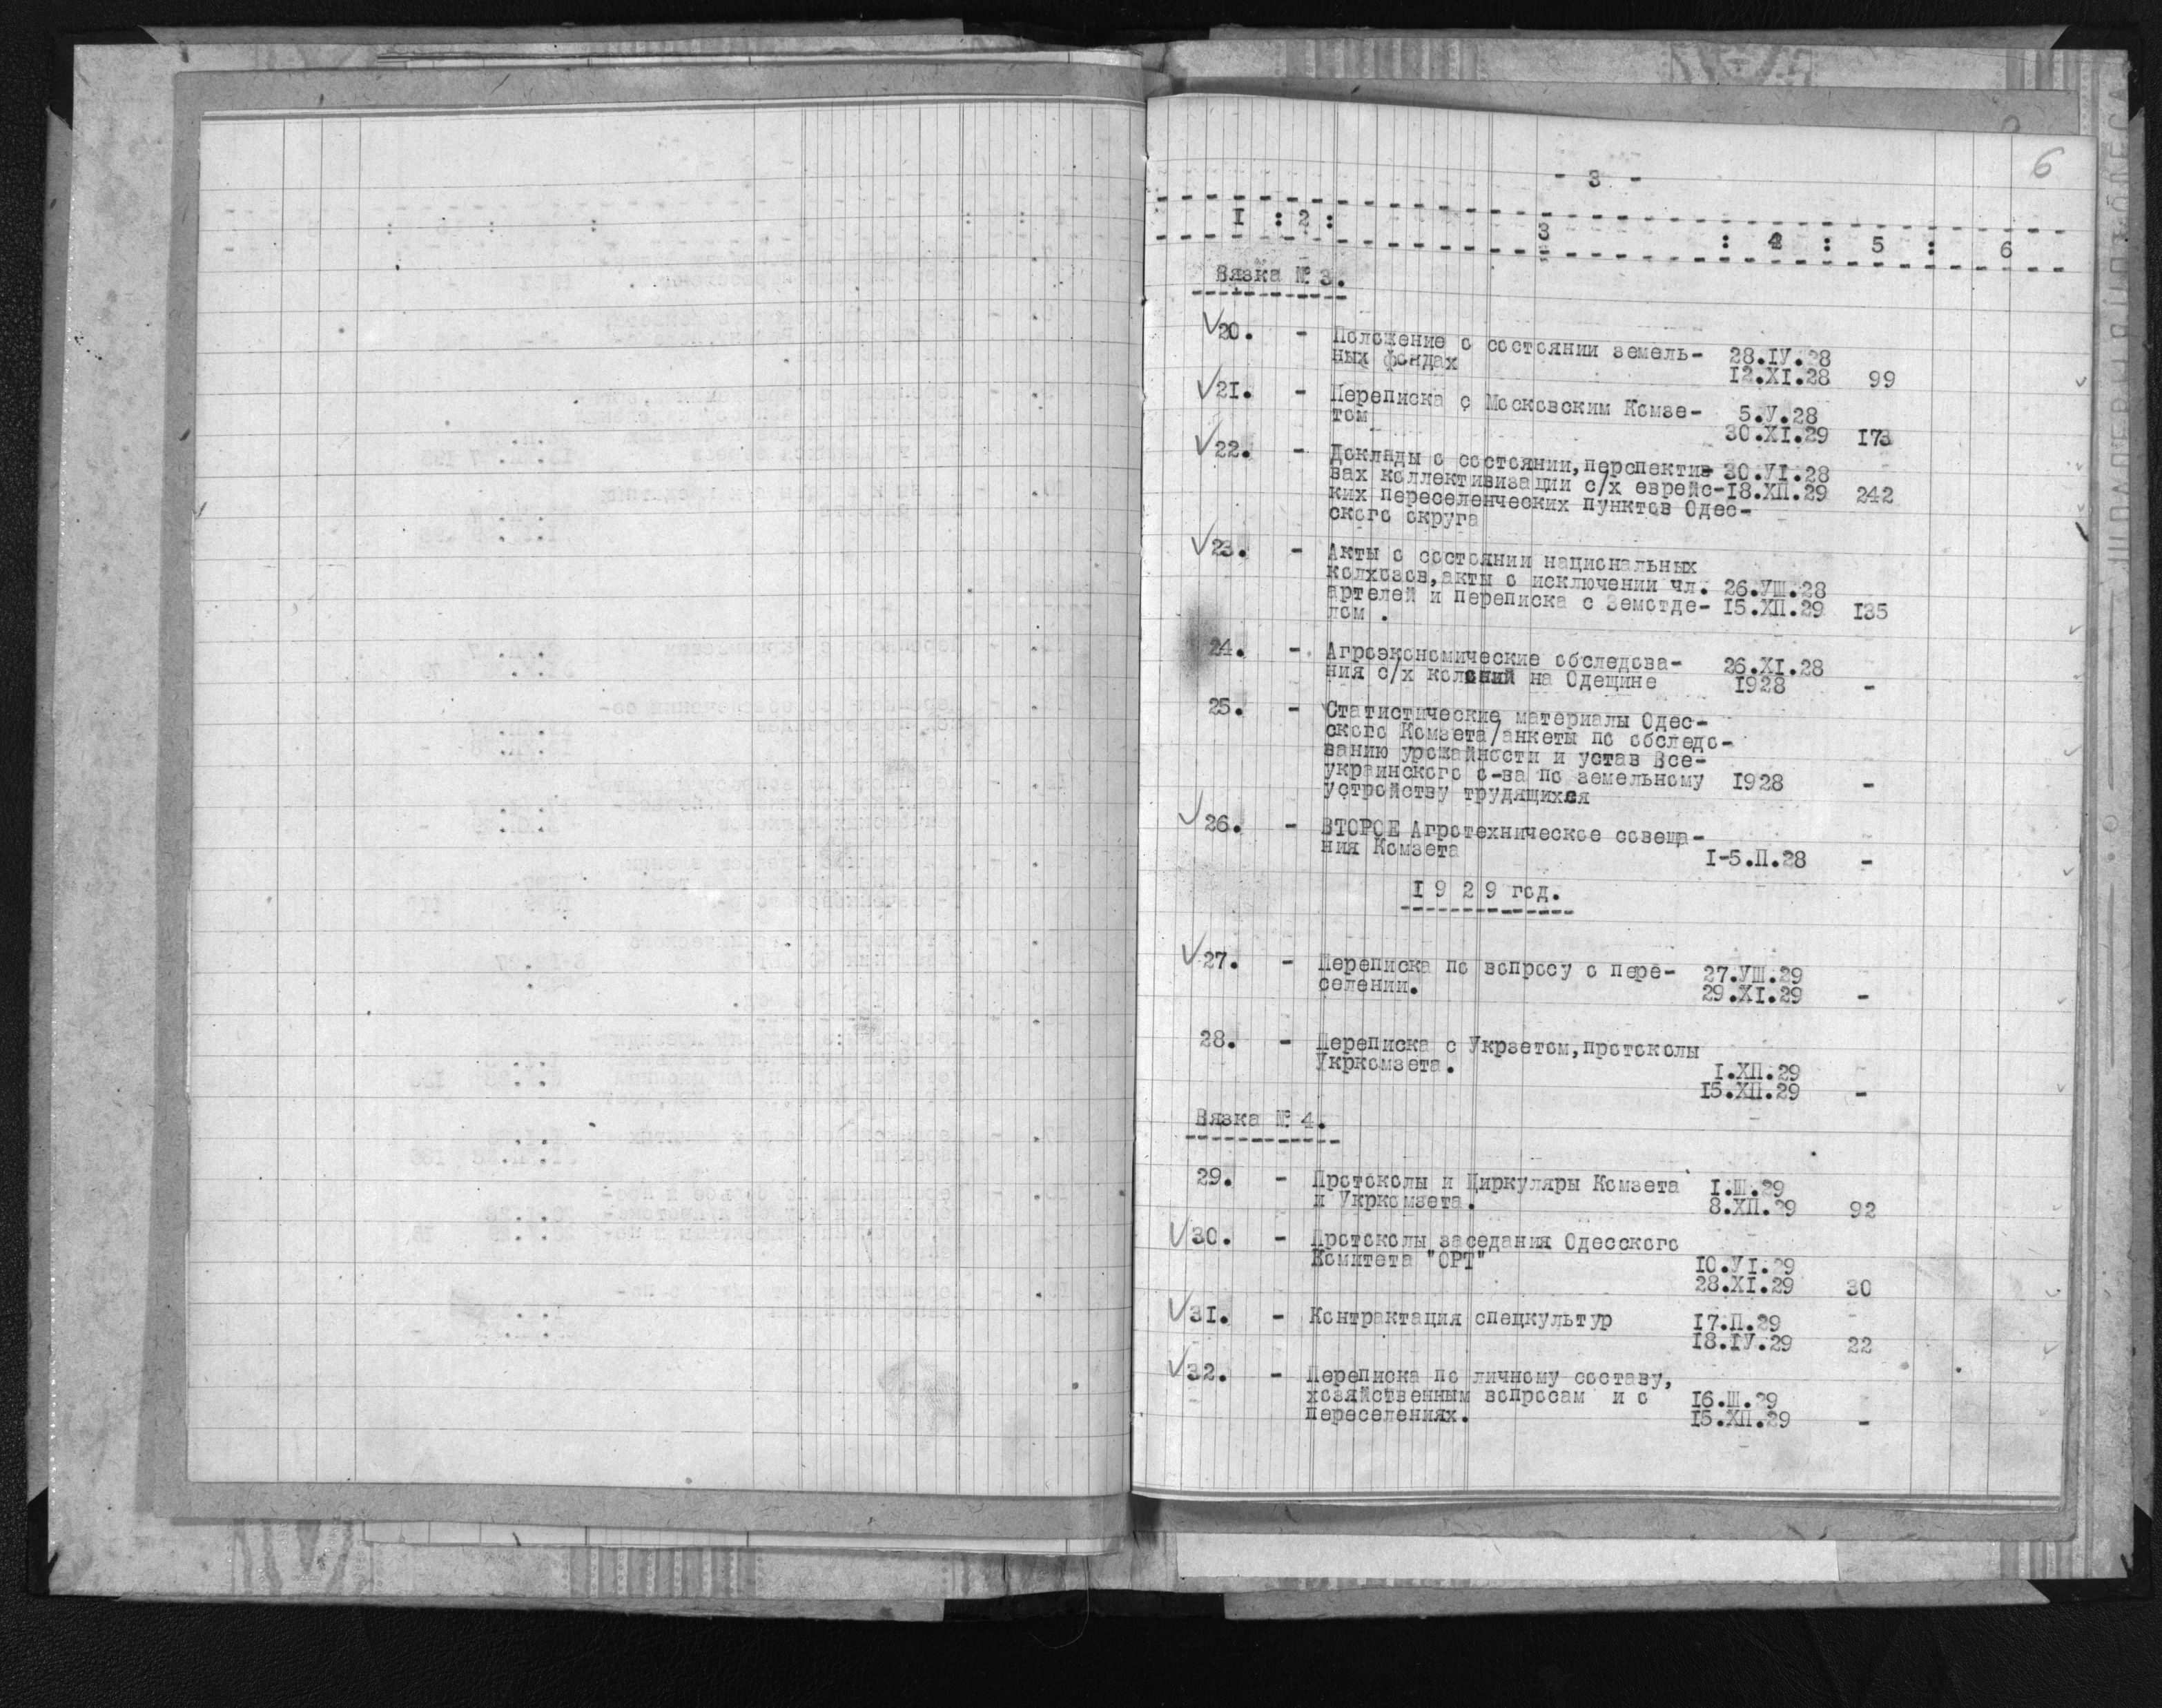 6
- 3 -
I : 2 : 3 : 4 : 5 : 6
Вязка № 3.
20. - Положение о состоянии земель- 28.IУ.28
ных фондах 12.XI.28 99
21. - Переписка с Московским Комзе- 5.У.28
том 30.XI.29 173
22. - Доклады о состоянии,перспектив 30.УI.28
вах коллективизации с/х еврейс-18.ХП.29 242
ких переселенческих пунктов Одес-
ского округа
23. - Акты о состоянии национальных
колхозов,акты о исключении чл. 26.УШ.28
артелей и переписка с Земотде- 15.ХП.29 135
лом .
24. - Агроэкономические обследова- 26.XI.28
ния с/х колоний на Одещине 1928 -
25. - Статистические материалы Одес-
ского Комзета/анкеты по обследо-
ванию урожайности и устав Все-
украинского о-ва по земельному 1928 -
устройству трудящихся
26. - ВТОРОЕ Агротехническое совеща-
ния Комзета I-5.П.28 -
I 9 2 9 год.
27. - Переписка по вопросу о пере- 27.УШ.29
селении. 29.XI.29 -
28. - Переписка с Укрзетом,протоколы
Укркомзета. I.ХП.29
15.ХП.29 -
Вязка № 4.
29. - Протоколы и Циркуляры Комзета I.Ш.29
и Укркомзета. 8.ХП.29 92
30. - Протоколы заседания Одесского
Комитета "ОРТ" 10.УI.29
28.XI.29 30
31. - Контрактация спецкультур 17.П.29
18.IУ.29 22
32. - Переписка по личному составу,
хозяйственным вопросам и о 16.Ш.29
переселениях. 15.ХП.29 -